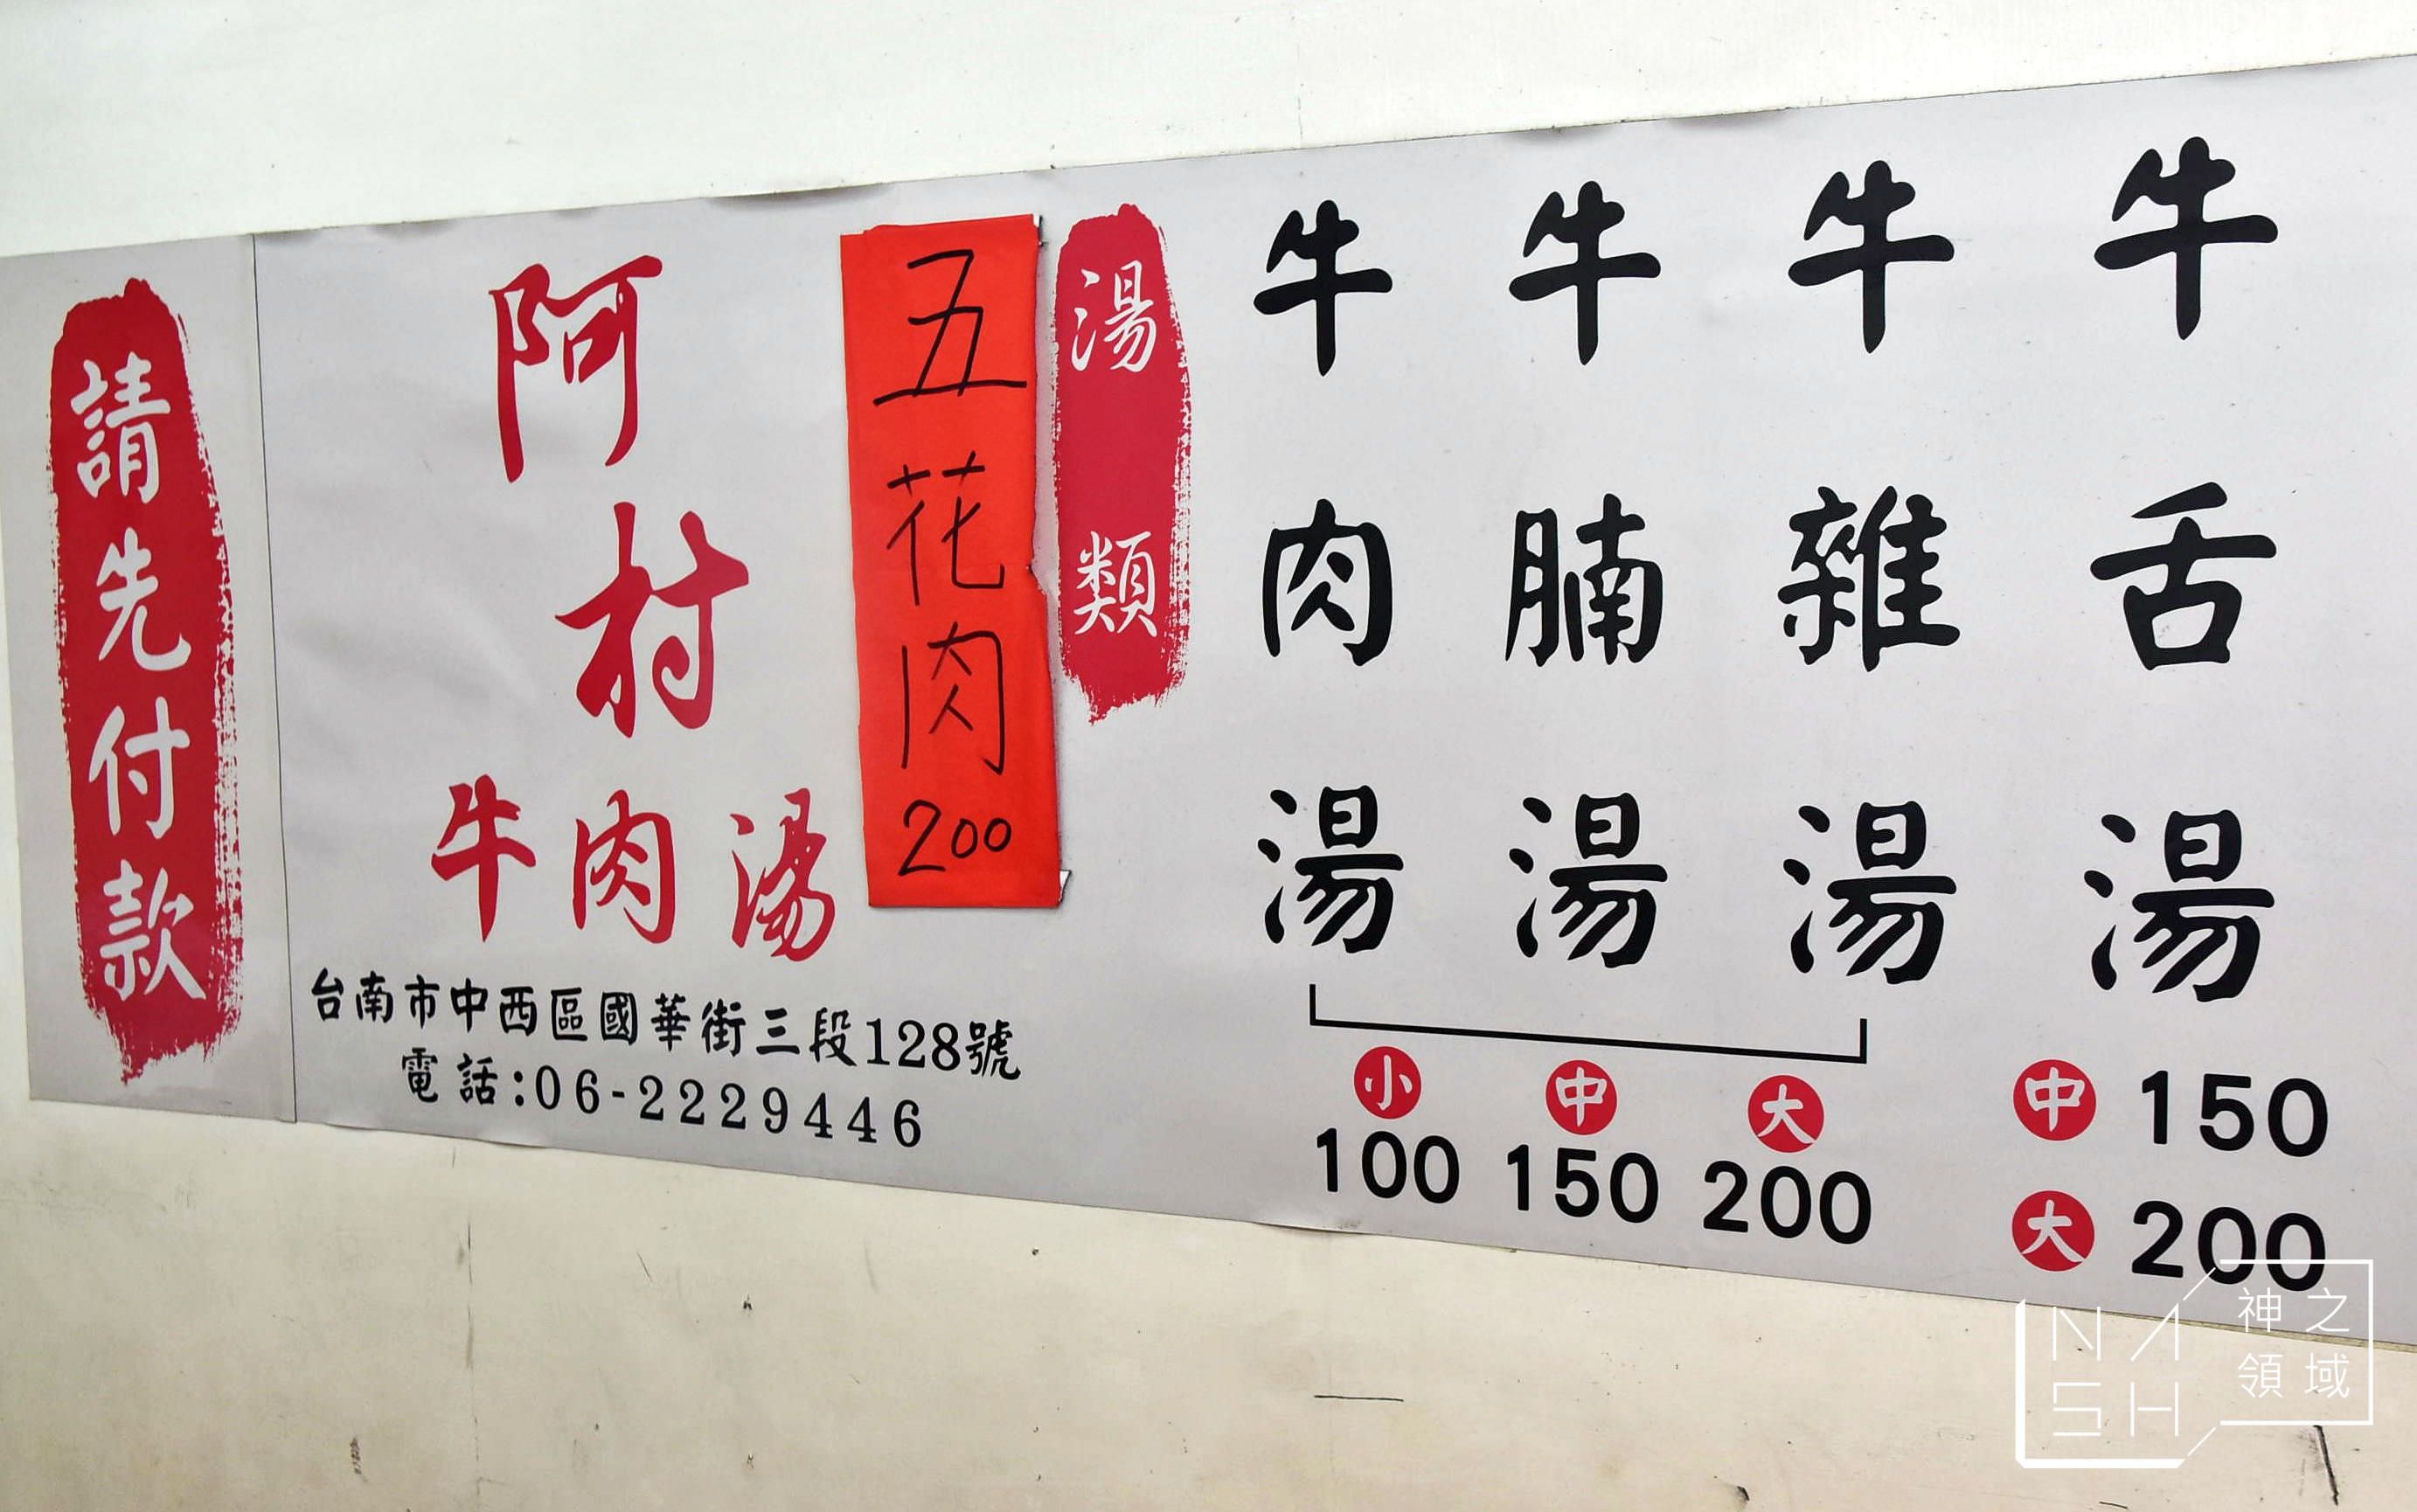 請先付款
阿村
牛肉湯
台南市中西區國華街三段128號
電話:06-2229446
五花肉200
湯類
牛肉湯
牛腩湯
牛雜湯
小 中 大
100 150 200
牛舌湯
中 150
大 200
NASH
神之
領域